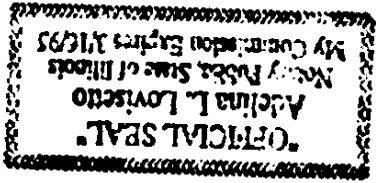 "OFFICIAL SEAL"
Adelina L. Lovisetto
Notary Public, State of Illinois
My Commission Expires 3/16/95